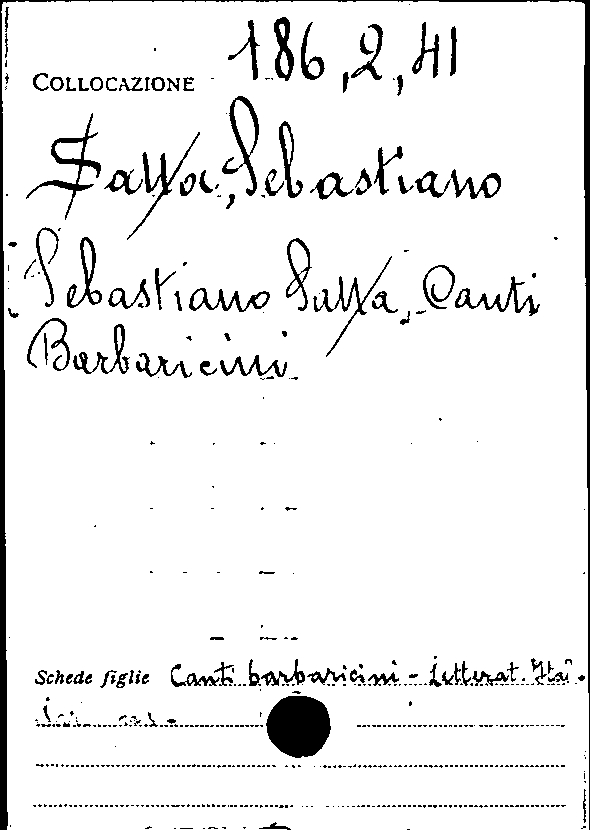 COLLOCAZIONE 186,2,41
Satta, Sebastiano
Sebastiano Satta, Canti
Barbaricini
Schede figlie Canti barbaricini - Letterat. Ita